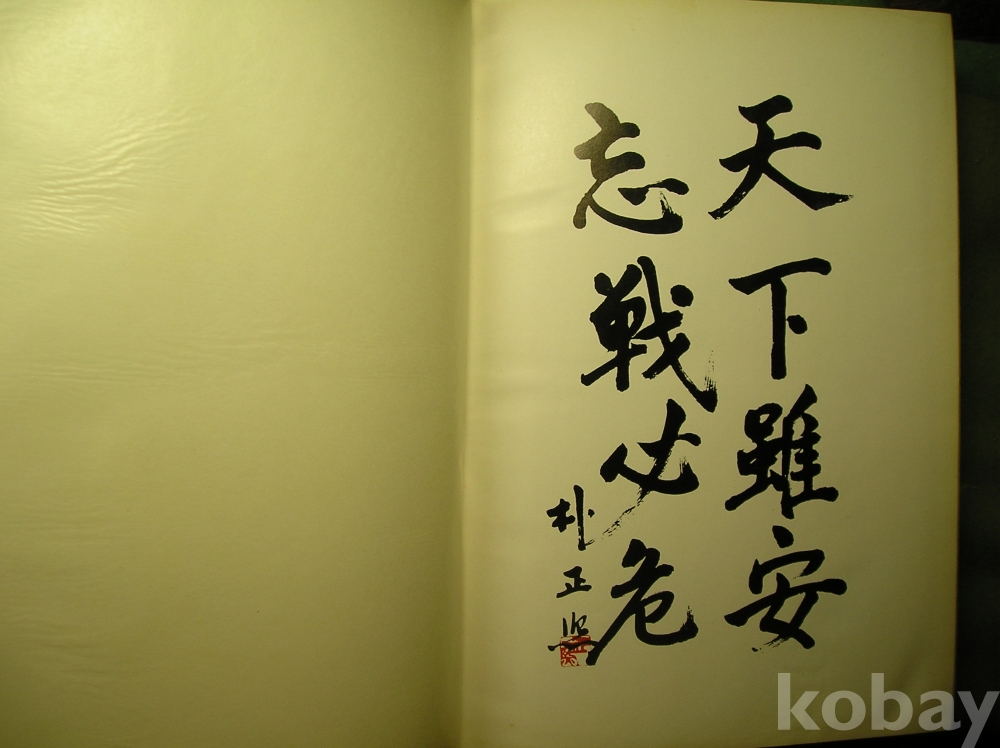 天下雖安
忘戦必危
朴正熙
kobay